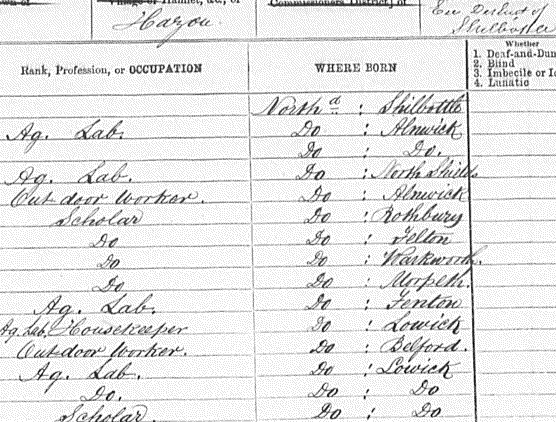 Village or Hamlet, &c., of
Commissioners District] of
Ecc District of
Hazon
Shilbottle
Rank, Profession, or OCCUPATION WHERE BORN Whether
1. Deaf-and-Dum
2. Blind
3. Imbecile or Id
4. Lunatic
Northd : Shilbottle
Ag. Lab. Do : Alnwick
Do : Do.
Ag. Lab. Do : North Shields
Out door Worker. Do : Alnwick
Scholar Do : Rothbury
Do Do : Felton
Do Do : Warkworth.
Do Do : Morpeth.
Ag. Lab. Do : Fenton
Ag. Lab. Housekeeper Do : Lowick
Outdoor Worker. Do : Belford.
Ag. Lab. Do : Lowick
Do. Do : Do
Scholar. Do : Do